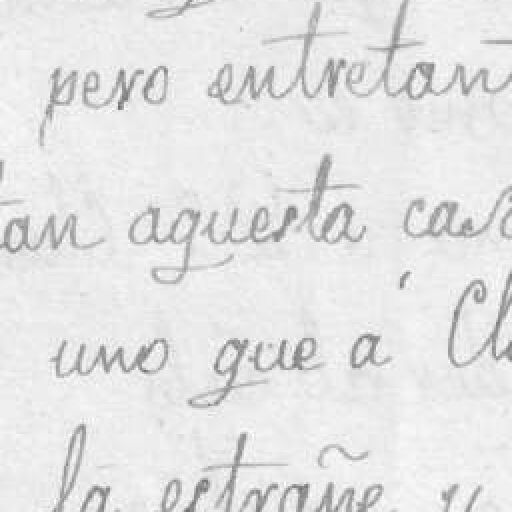 pero entretant
tan aquesta cas
uno que á Cl
la estrañe y